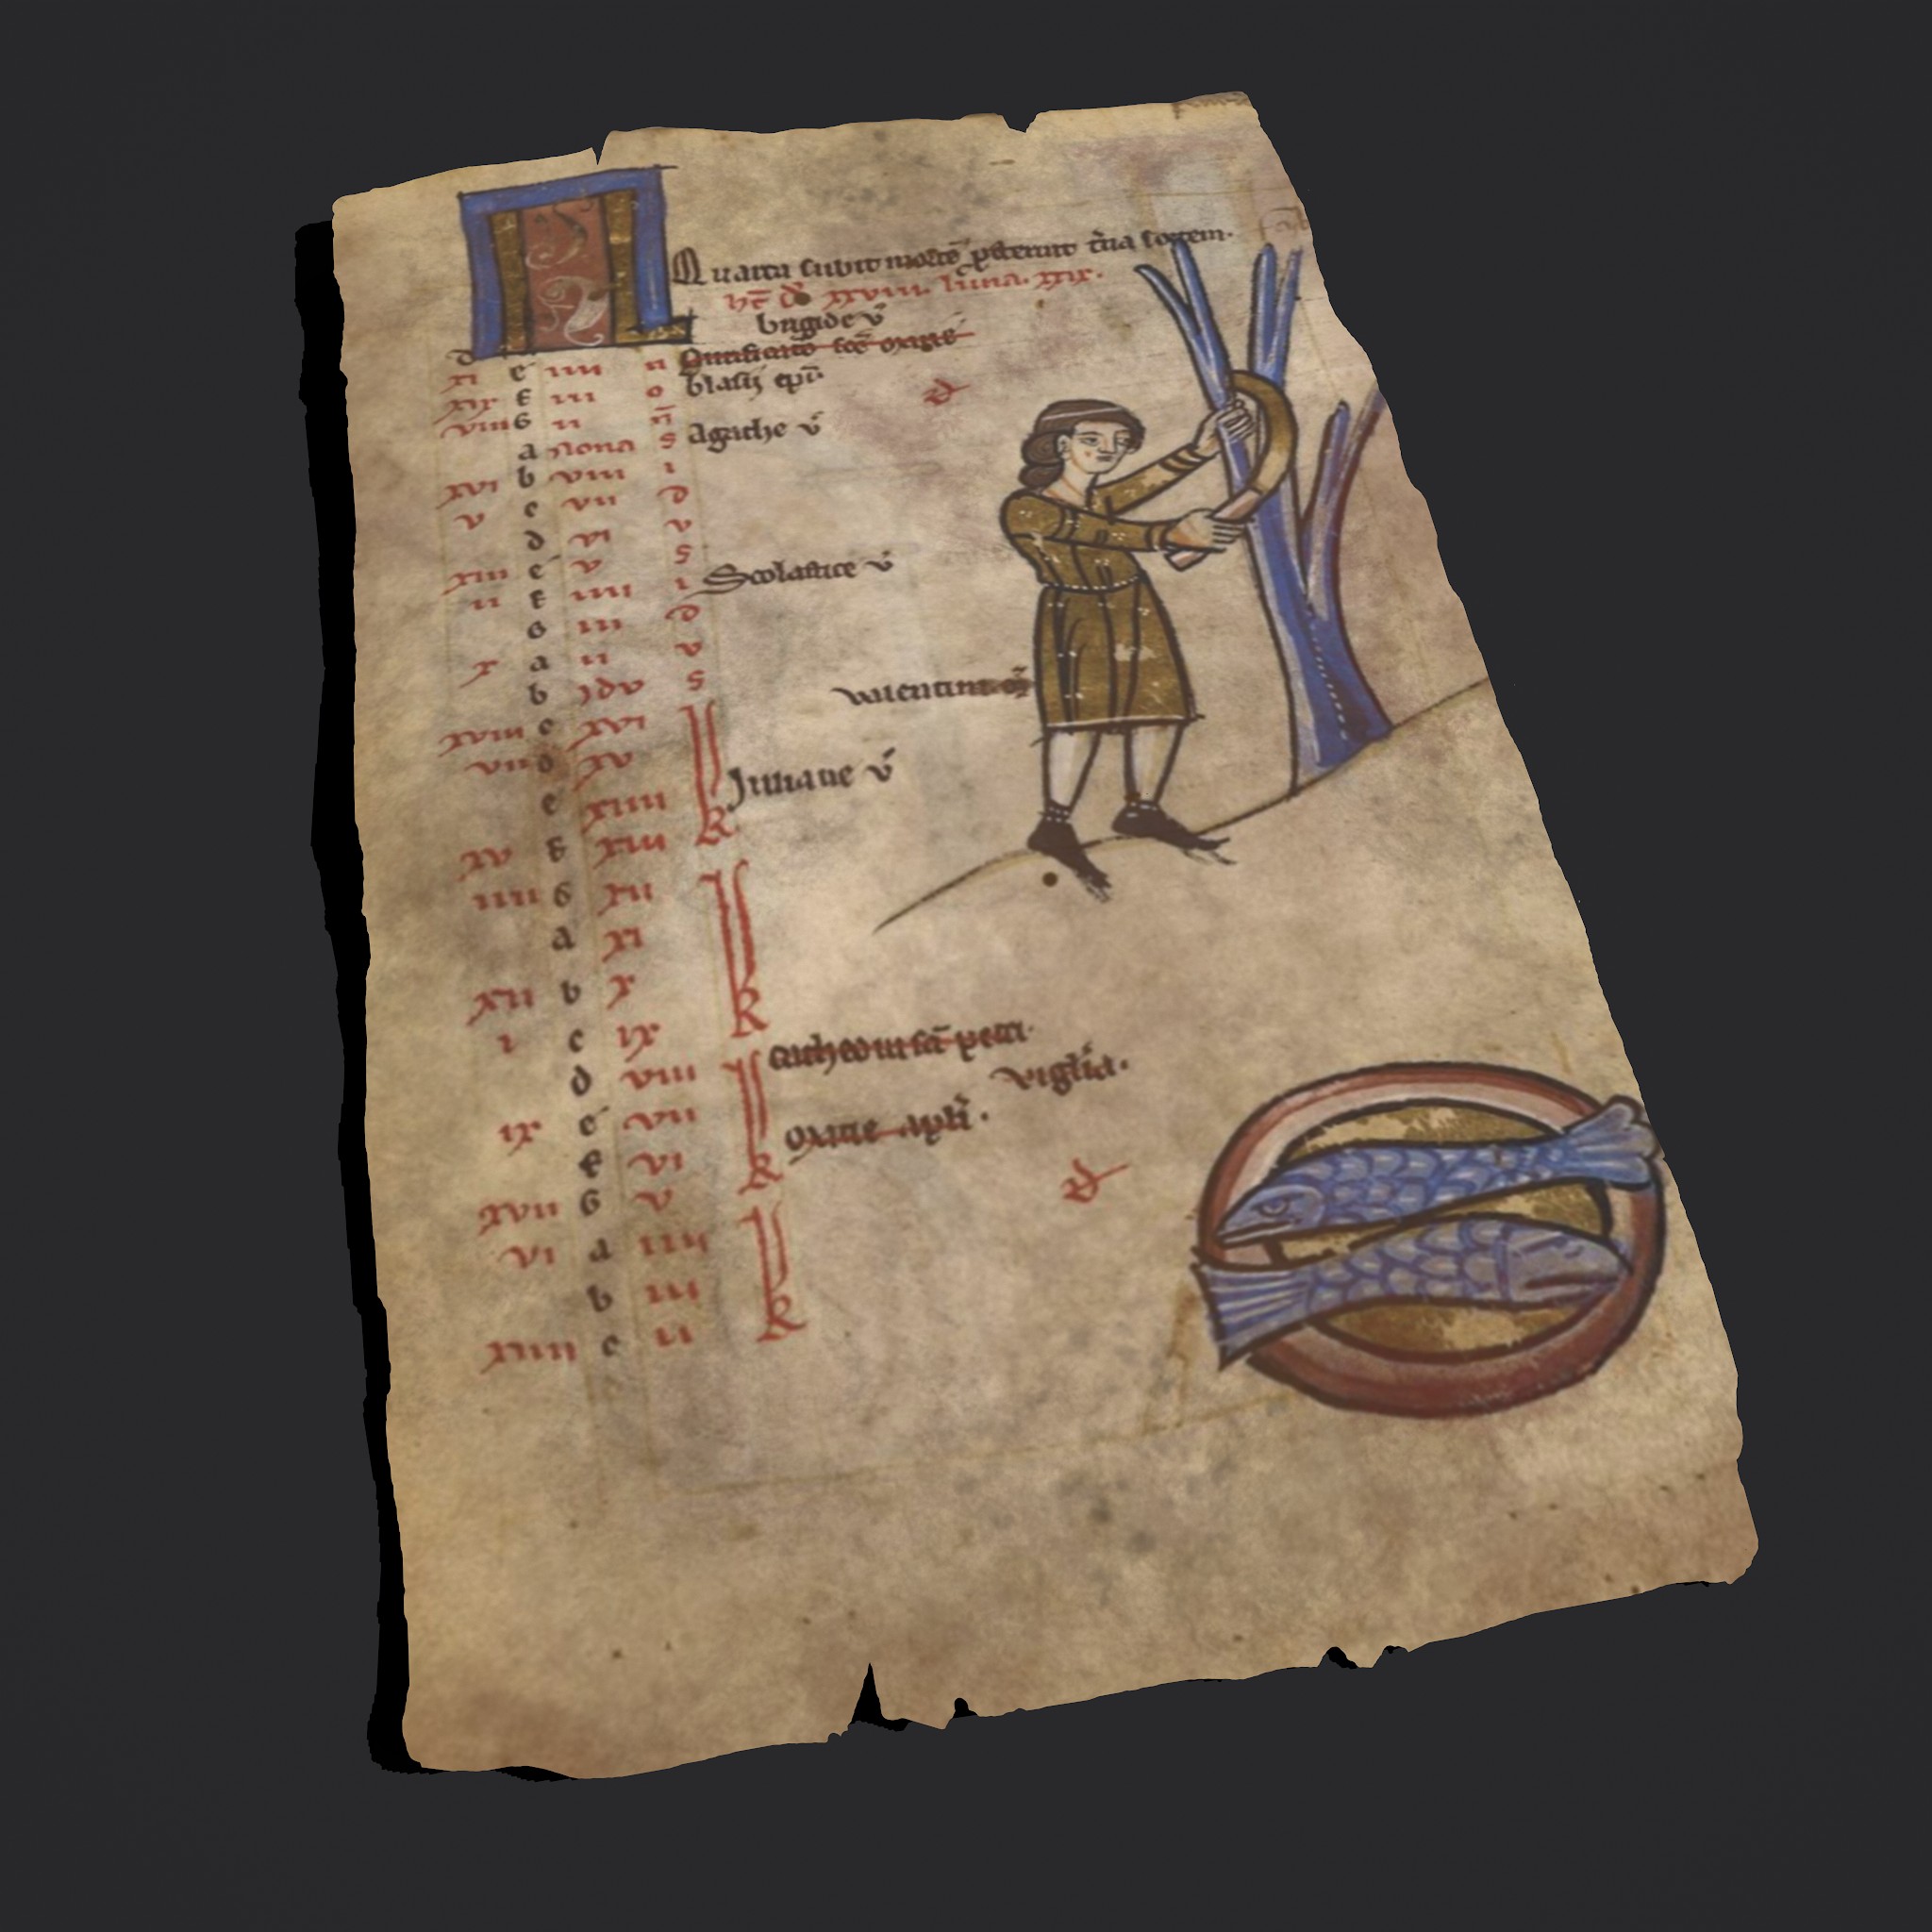 KL
Quarta subit mortē ꝓsternit t̉cia fortem.
hꝫ d̉ xxviii. luna. xxix.
d brigide v̉
xi e iiii n Purificatō scē marie
xix f iii o blasij ep̄i
viii G ii n̄
a Nona s Agathe v̉
xvi b viii i
v c vii d
d vi v
xiii e v s Scolastice v̉
ii f iiii i
G iii d
x a ii v
b Idv s
xviii c xvi valentini
vii d xv
e xiiii k Juliane v̉
xv f xiii
iiii G xii
a xi
xii b x k
i c ix
d viii cathed̉ scī petri
ix e vii vigilia.
f vi k apl̉i.
xvii G v
vi a iiii
b iii k
xiiii c ii